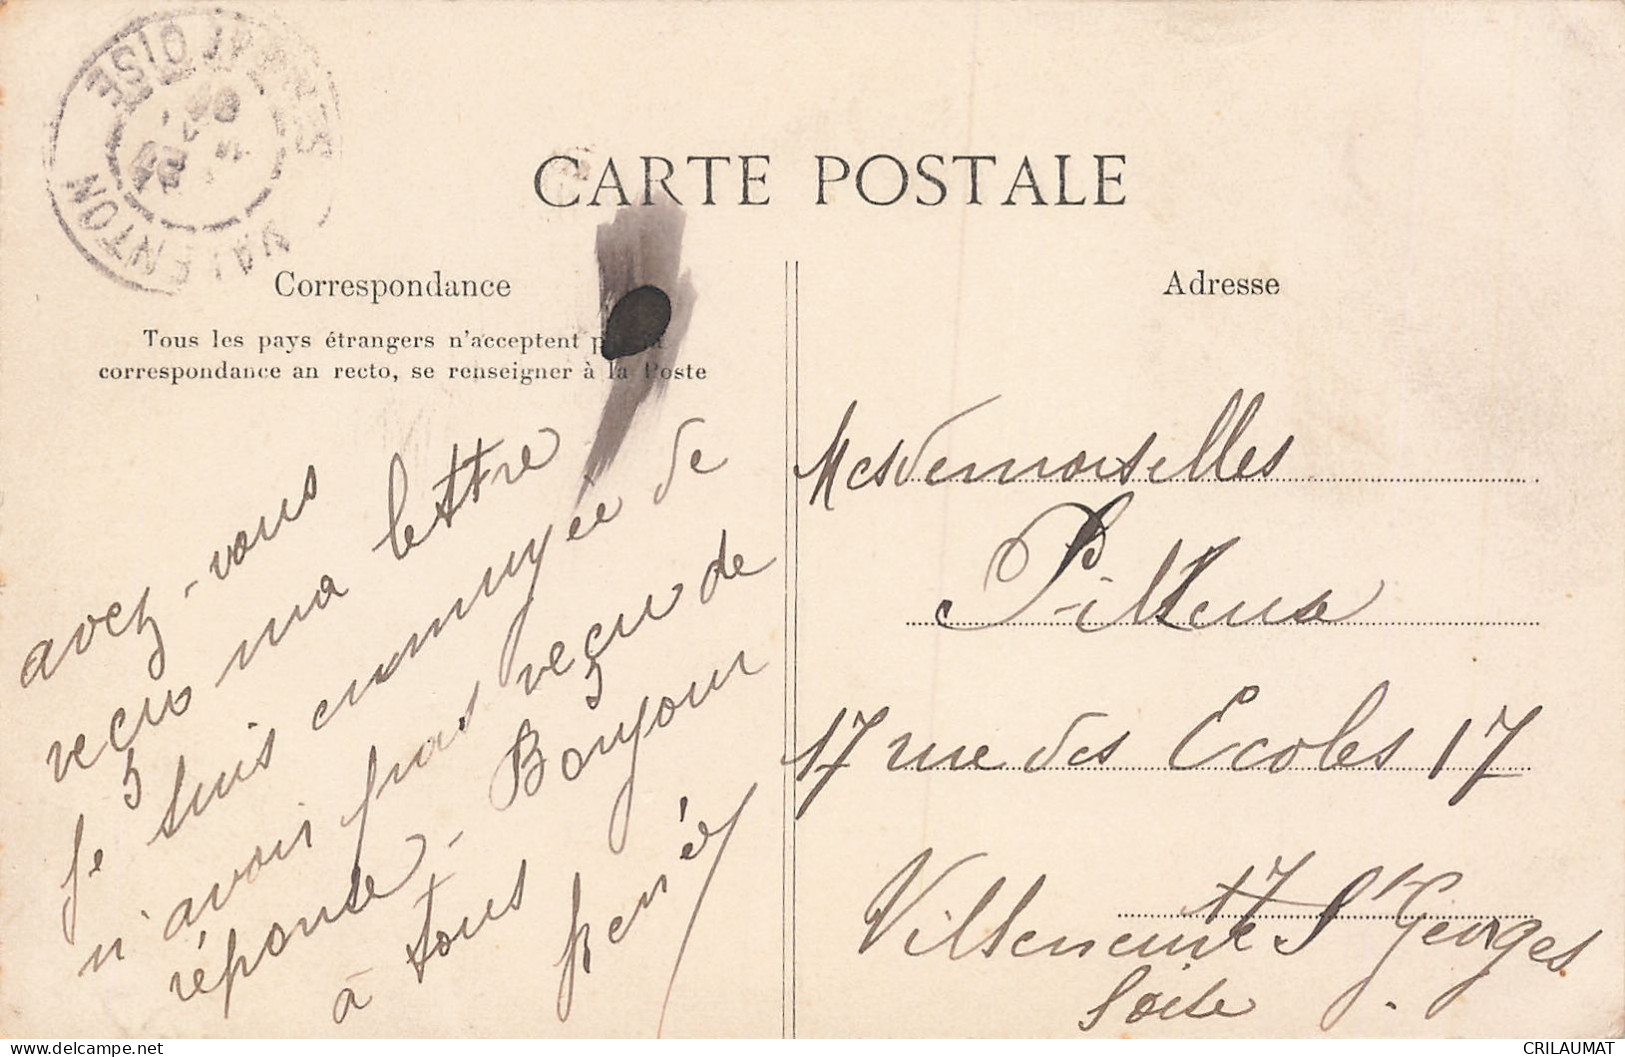 VALENTON
CARTE POSTALE
Correspondance
Adresse
Tous les pays étrangers n'acceptent
correspondance an recto, se renseigner à la Poste
avez-vous
reçu ma lettre
Je suis ennuyée de
n'avoir pas reçu de
réponse - Bonjour
à tous
Mesdemoiselles
17 rue des Ecoles 17
17
Villeneuve St Georges
www.delcampe.net
CRILAUMAT